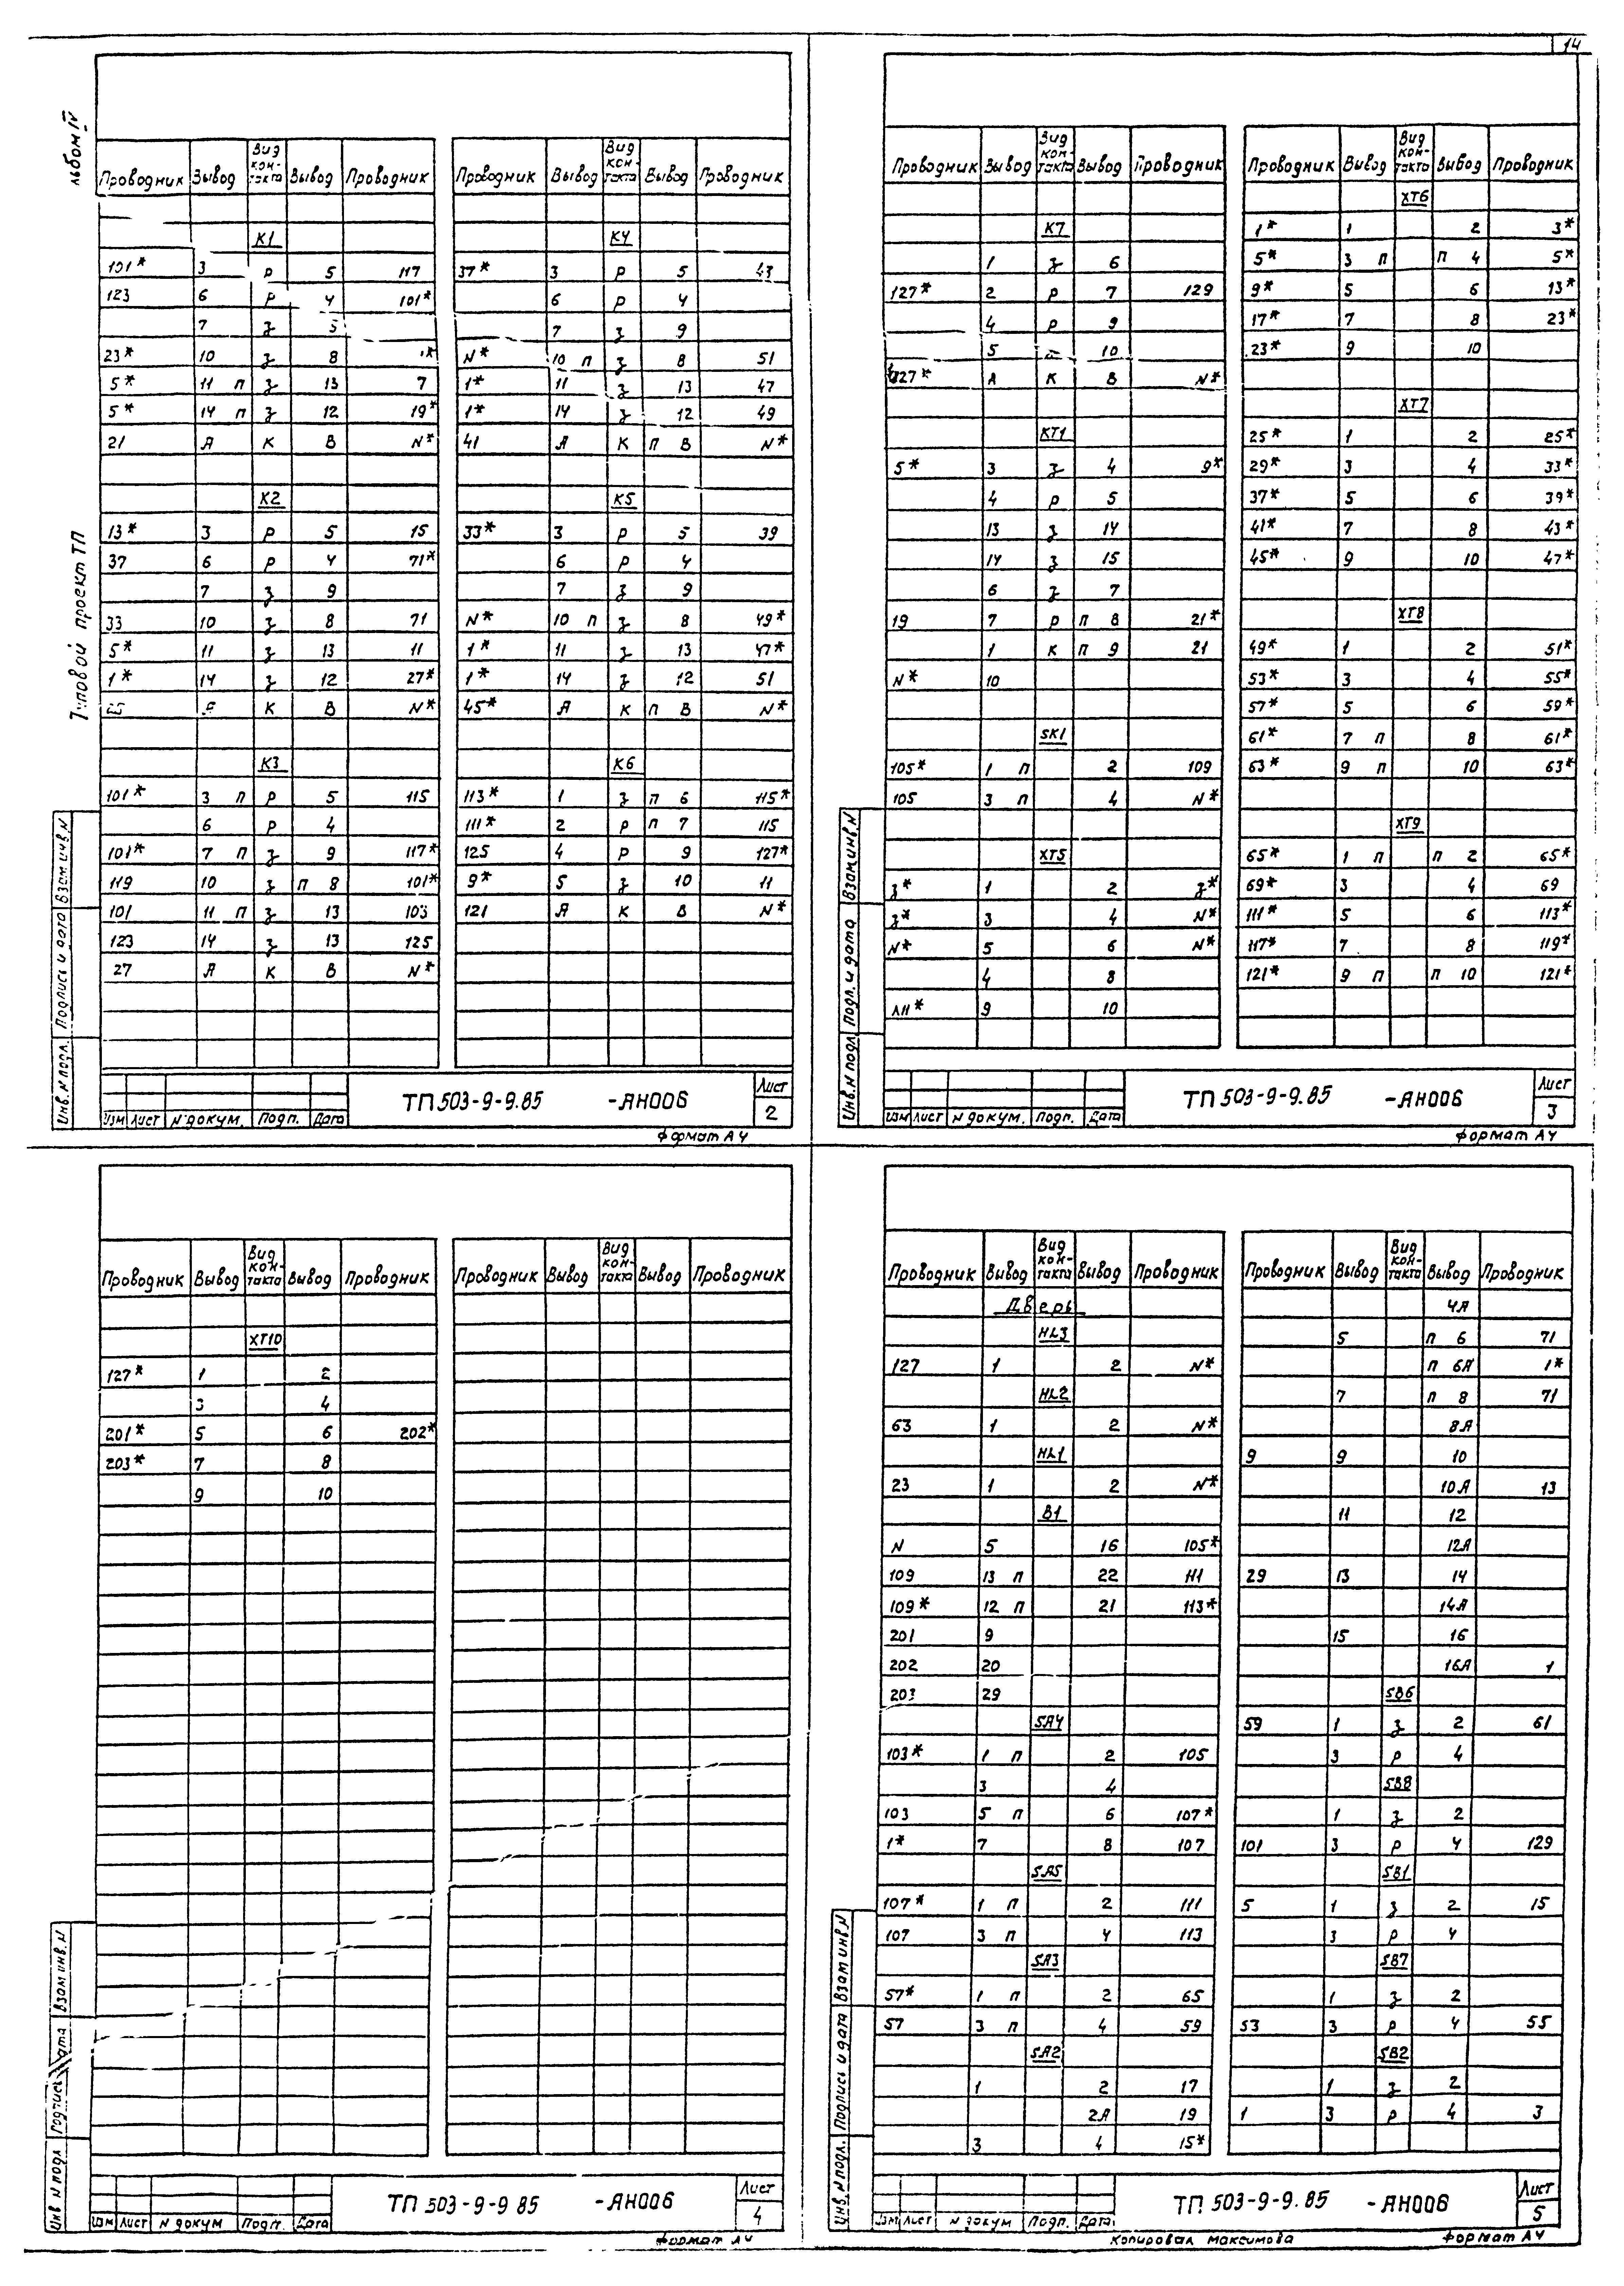 14
льбом IV
Типовой проект ТП
Проводник Вывод Вид кон-такта Вывод Проводник
К1
101* 3 р 5 117
123 6 р 4 101*
7 з 5
23* 10 з 8
5* 11 п з 13 7
5* 14 п з 12 19*
21 А К В N*
К2
13* 3 р 5 15
37 6 р 4 71*
7 з 9
33 10 з 8 71
5* 11 з 13 11
1* 14 з 12 27*
К В N*
К3
101* 3 п р 5 115
6 р 4
101* 7 п з 9 117*
119 10 з п 8 101*
101 11 п з 13 103
123 14 з 13 125
27 А К В N*
Проводник Вывод Вид кон-такта Вывод Проводник
К4
37* 3 р 5 43
6 р 4
7 з 9
N* 10 п з 8 51
1* 11 з 13 47
1* 14 з 12 49
41 А К п В N*
К5
33* 3 р 5 39
6 р 4
7 з 9
N* 10 п з 8 49*
1* 11 з 13 47*
1* 14 з 12 51
45* А К п В N*
К6
113* 1 з п 6 115*
111* 2 р п 7 115
125 4 р 9 127*
9* 5 з 10 11
121 А К В N*
Инв.N подл. Подпись и дата Взам инв.N
Изм Лист N докум. Подп. Дата
ТП 503-9-9.85 -АН006
Лист
2
Формат А4
Проводник Вывод Вид кон-такта Вывод Проводник
К7
1 з 6
127* 2 р 7 129
4 р 9
5 10
127* А К В N*
КТ1
5* 3 з 4 9*
4 р 5
13 з 14
14 з 15
6 з 7
19 7 р п 8 21*
1 К п 9 21
N* 10
SK1
105* 1 п 2 109
105 3 п 4 N*
ХТ5
з* 1 2 з*
з* 3 4 N*
N* 5 6 N*
4 8
9 10
Проводник Вывод Вид кон-такта Вывод Проводник
ХТ6
1* 1 2 3*
5* 3 п п 4 5*
9* 5 6 13*
17* 7 8 23*
23* 9 10
ХТ7
25* 1 2 25*
29* 3 4 33*
37* 5 6 39*
41* 7 8 43*
45* 9 10 47*
ХТ8
49* 1 2 51*
53* 3 4 55*
57* 5 6 59*
61* 7 п 8 61*
63* 9 п 10 63*
ХТ9
65* 1 п п 2 65*
69* 3 4 69
111* 5 6 113*
117* 7 8 119*
121* 9 п п 10 121*
Инв.N подл Подп. и дата Взам.инв.N
Изм Лист N докум. Подп. Дата
ТП 503-9-9.85 -АН006
Лист
3
Формат А4
Проводник Вывод Вид кон-такта Вывод Проводник
ХТ10
127* 1 2
3 4
201* 5 6 202*
203* 7 8
9 10
Проводник Вывод Вид кон-такта Вывод Проводник
Инв N подл Подпись дата Взам инв.N
Изм Лист N докум Подп. Дата
ТП 503-9-9 85 -АН006
Лист
4
Формат А4
Проводник Вывод Вид кон-такта Вывод Проводник
Дверь
HL3
127 1 2 N*
HL2
63 1 2 N*
HL1
23 1 2 N*
В1
N 5 16 105*
109 13 п 22 111
109* 12 п 21 113*
201 9
202 20
203 29
SA4
103* 1 п 2 105
3 4
103 5 п 6 107*
1* 7 8 107
SA5
107* 1 п 2 111
107 3 п 4 113
SA3
57* 1 п 2 65
57 3 п 4 59
SA2
1 2 17
2А 19
3 4 15*
Проводник Вывод Вид кон-такта Вывод Проводник
4А
5 п 6 71
п 6А 1*
7 п 8 71
8А
9 9 10
10А 13
11 12
12А
29 13 14
14А
15 16
16А 1
SB6
59 1 з 2 61
3 р 4
SB8
1 з 2
101 3 р 4 129
SB1
5 1 з 2 15
3 р 4
SB7
1 з 2
53 3 р 4 55
SB2
1 з 2
1 3 р 4 3
Инв.N подл. Подпись и дата Взам инв N
Изм Лист N докум Подп. Дата
ТП 503-9-9.85 -АН006
Лист
5
Копировал Максимова
Формат А4